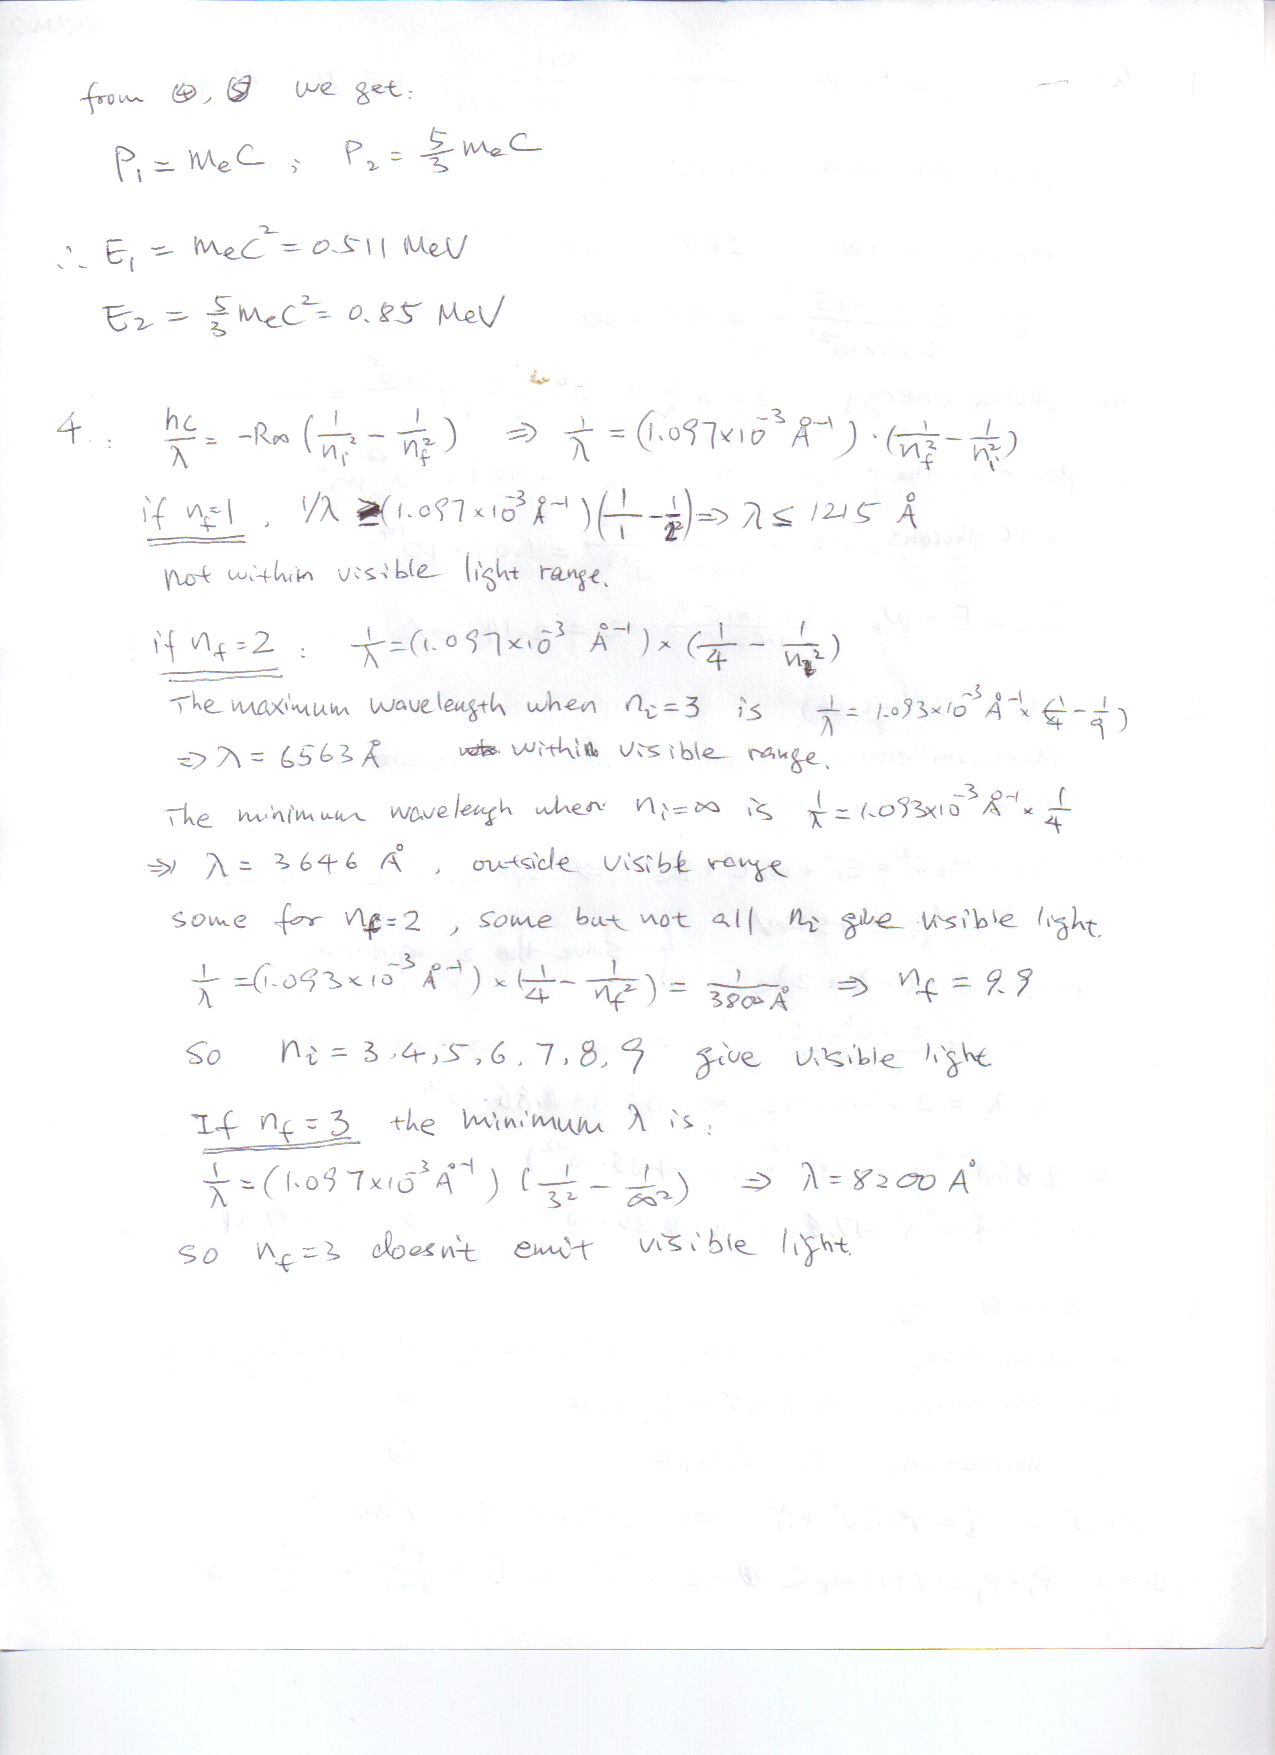 from ④, ⑤ we get:
P₁ = MeC ; P₂ = 5/3 meC
∴ E₁ = MeC² = 0.511 MeV
E2 = 5/3 MeC² = 0.85 MeV
4. : hc/λ = -R∞ (1/ni² - 1/nf²) ⇒ 1/λ = (1.097×10⁻³ Å⁻¹)·(1/nf² - 1/ni²)
if nf=1, 1/λ ≥ (1.097×10⁻³ Å⁻¹)(1/1 - 1/2²) ⇒ λ ≤ 1215 Å
not within visible light range.
if nf=2 : 1/λ = (1.097×10⁻³ Å⁻¹) × (1/4 - 1/ni²)
The maximum wavelength when ni=3 is 1/λ = 1.093×10⁻³ Å⁻¹ × (1/4 - 1/9)
⇒ λ = 6563 Å within visible range.
The minimum wavelengh when ni=∞ is 1/λ = 1.093×10⁻³ Å⁻¹ × 1/4
⇒ λ = 3646 Å, outside visible range
some for nf=2, some but not all ni give visible light.
1/λ = (1.093×10⁻³ Å⁻¹) × (1/4 - 1/nf²) = 1/3800 Å ⇒ nf = 9.9
So ni = 3,4,5,6,7,8,9 give visible light
If nf=3 the minimum λ is:
1/λ = (1.097×10⁻³ Å⁻¹) (1/3² - 1/∞²) ⇒ λ = 8200 Å
so nf=3 doesn't emit visible light.